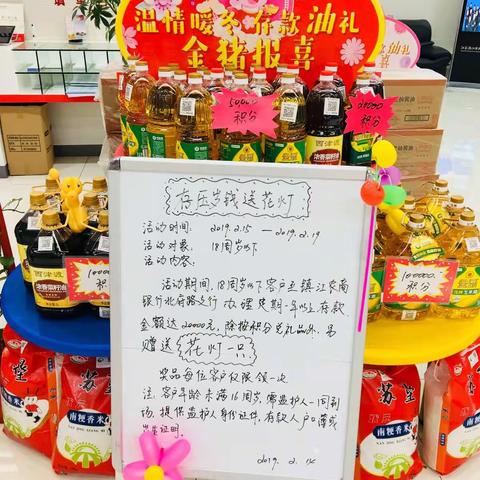 温情暖冬 存款油礼
金猪报喜
10000
积分
20000
积分
存压岁钱送花灯：
活动时间： 2019.2.15 — 2019.2.19
活动对象： 18周岁以下
活动内容：
活动期间，18周岁以下客户至镇江农商
银行北府路支行办理定期一年以上存款
金额达20000元，除按积分兑礼品外，另
赠送花灯一只
奖品每位客户仅限领一次
注：客户年龄未满16周岁，需监护人一同到
场，提供监护人身份证件，有款人户口簿或
出生证明。
2019.2.14
西津渡
浓香菜籽油
西津渡
浓香菜籽油
100000
积分
100000
积分
苏垦
南粳香米
南粳香米